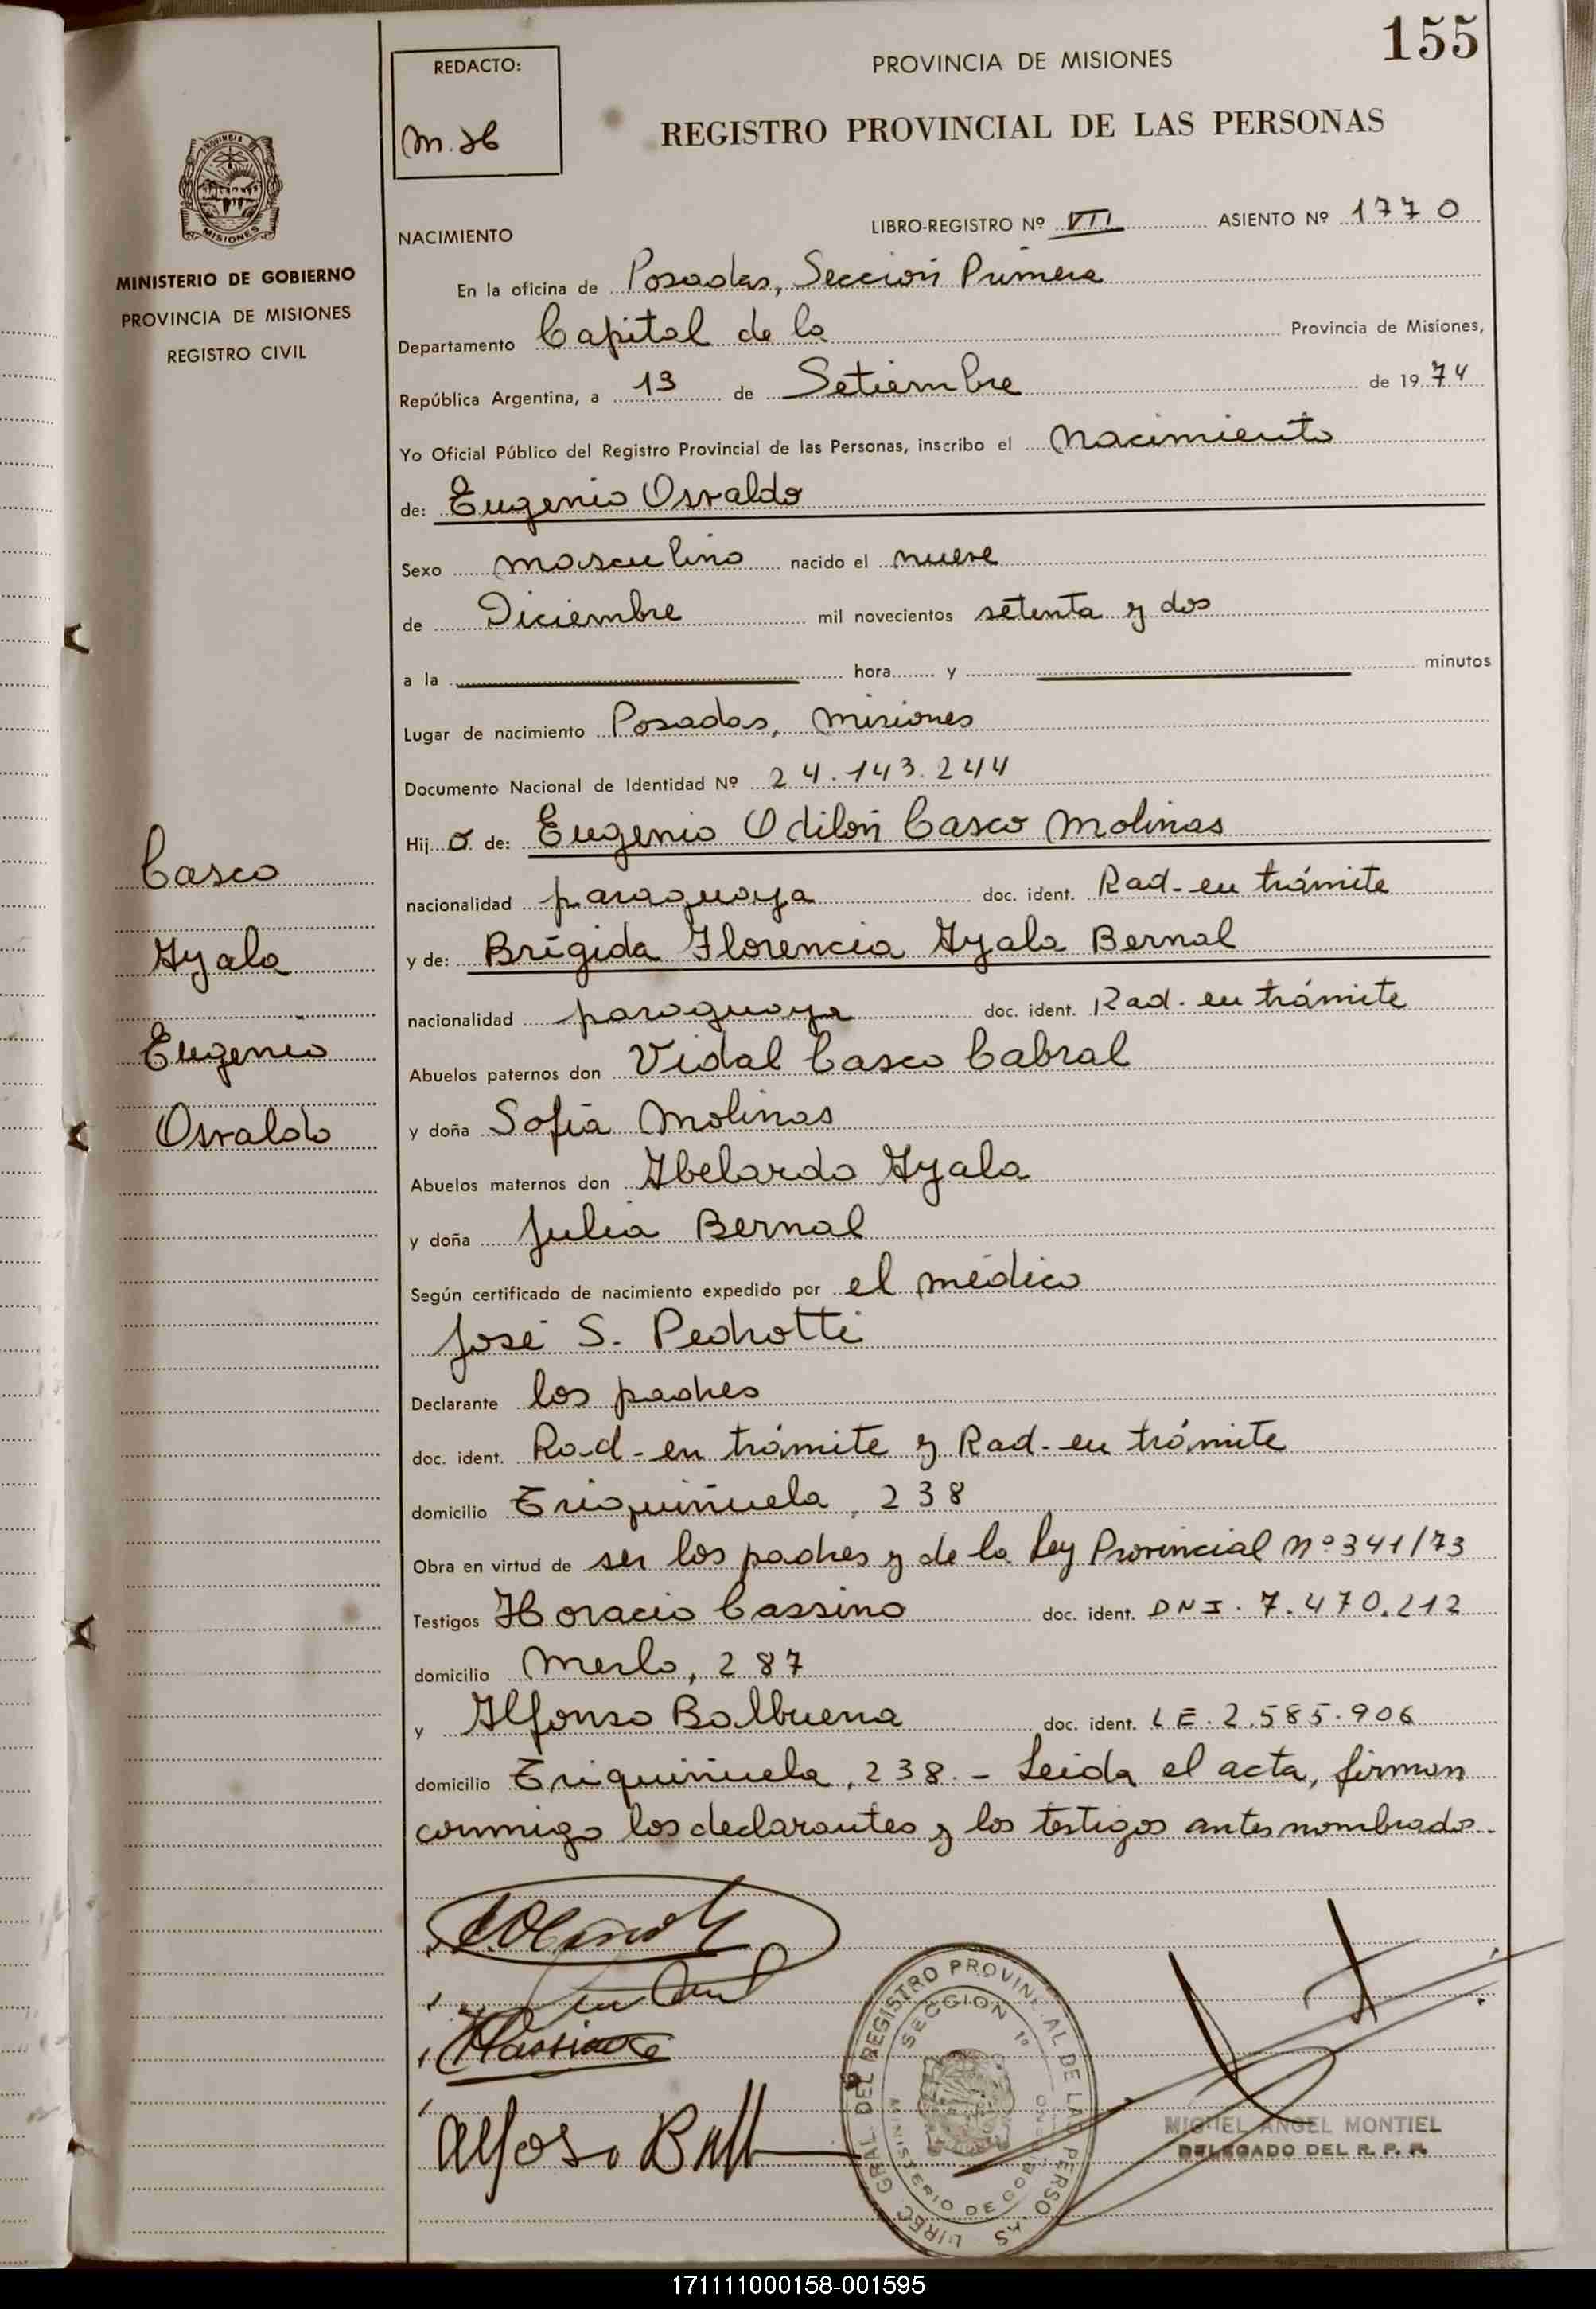 155
REDACTO:
M. H
PROVINCIA DE MISIONES
REGISTRO PROVINCIAL DE LAS PERSONAS
PROVINCIA DE
MISIONES
MINISTERIO DE GOBIERNO
PROVINCIA DE MISIONES
REGISTRO CIVIL
NACIMIENTO LIBRO-REGISTRO Nº VII ASIENTO Nº 1770
En la oficina de Posadas, Sección Primera
Departamento Capital de la Provincia de Misiones,
República Argentina, a 13 de Setiembre de 1974
Yo Oficial Público del Registro Provincial de las Personas, inscribo el Nacimiento
de: Eugenio Osvaldo
Sexo masculino nacido el nueve
de Diciembre mil novecientos setenta y dos
a la hora y minutos
Lugar de nacimiento Posadas, Misiones
Documento Nacional de Identidad Nº 24.143.244
Hij o de: Eugenio Odilón Casco Molinas
nacionalidad paraguaya doc. ident. Rad. en trámite
y de: Brígida Florencia Ayala Bernal
nacionalidad paraguaya doc. ident. Rad. en trámite
Abuelos paternos don Vidal Casco Cabral
y doña Sofía Molinas
Abuelos maternos don Abelardo Ayala
y doña Julia Bernal
Según certificado de nacimiento expedido por el médico
José S. Pedrotti
Declarante los padres
doc. ident. Rad. en trámite y Rad. en trámite
domicilio Eriquiñuela, 238
Obra en virtud de ser los padres y de la Ley Provincial Nº 341/73
Testigos Horacio Cassino doc. ident. DNI. 7.470.212
domicilio Merlo, 287
y Alfonso Balbuena doc. ident. LE. 2.585.906
domicilio Eriquiñuela, 238. - Leída el acta, firman
conmigo los declarantes y los testigos antes nombrados.
Casco
Ayala
Eugenio
Osvaldo
HCassino
Alfoso Balb
DIREC. GRAL. DEL REGISTRO PROVINCIAL DE LAS PERSONAS
SECCION 1º
MINISTERIO DE GOBIERNO
MIGUEL ANGEL MONTIEL
DELEGADO DEL R. P. P.
171111000158-001595